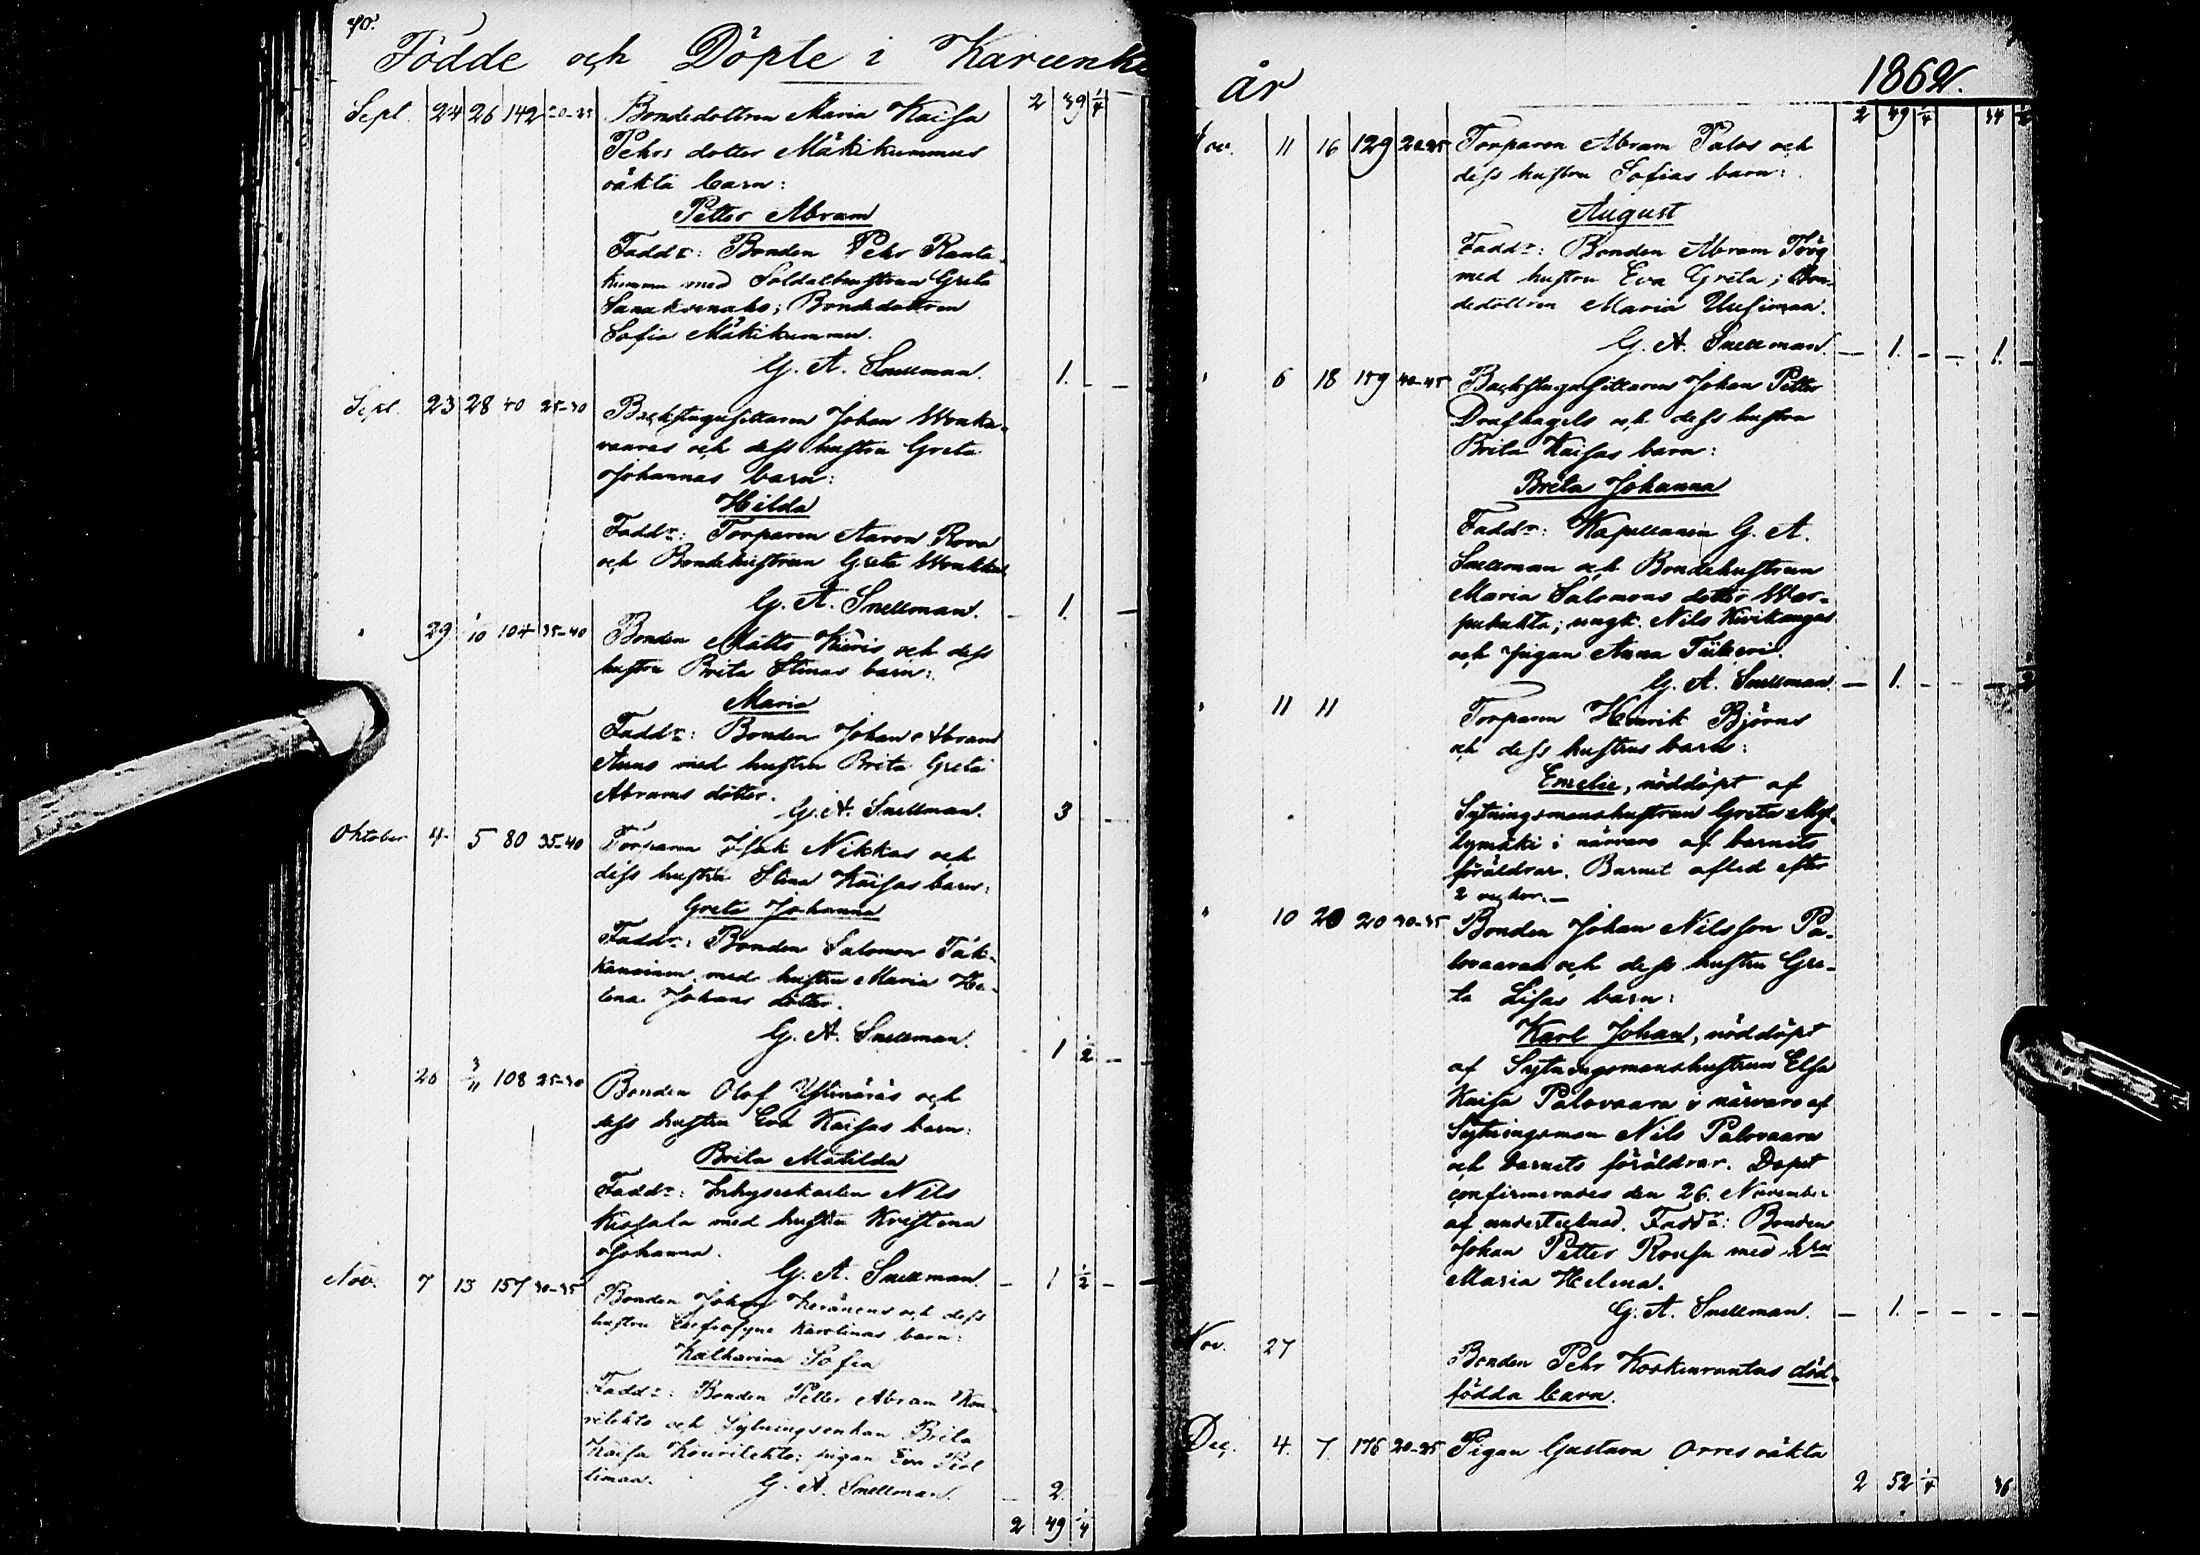 70.
Födde och Döpte i Karunki
Sept. 24 26 142 20-25 Bondedottren Maria Kaisa 2 39 1/4
Pehrs dotter Mäkikummus
oäkta barn:
Petter Abram
Faddr: Bonden Pehr Ranta-
kummu med Soldathustrun Greta
Bondedottren
Sofia Mäkikummu.
G. A. Snellman. 1. - -
Sept. 23 28 40 25-30 Backstugusittaren Johan Wonka-
vaaras och dess hustru Greta
Johannas barn:
Hilda
Faddr: Torparen Aaron Rova
och Bondehustrun Greta
G. A. Snellman. - 1. -
" 29 1/10 104 35-40 Bonden Matts Kieris och dess
hustru Brita Stinas barn:
Maria
Faddr: Bonden Johan Abram
Anno med hustru Brita Greta
Abrams dotter.
G. A. Snellman. 3 -
Oktober 4 5 80 35-40 Torparen Isak Nikkas och
dess hustru Stina Kaisas barn:
Greta Johanna
Faddr: Bonden Salomon
med hustru Maria He-
lena Johans dotter.
G. A. Snellman. - 1 1/2 -
" 26 3/11 108 25-30 Bonden Olof och
dess hustru Eva Kaisas barn:
Brita Matilda
Faddr: Inhysekarlen Nils
med hustru Kristina
Johanna.
G. A. Snellman. - 1 1/2 -
Nov. 7 13 157 30-35 Bonden Johan Keränens och dess
hustru Eufrosyne Karolinas barn:
Katharina Sofia
Faddr: Bonden Petter Abram Kou-
rilehto och Sytningsenkan Brita
Kaisa Kourilehto; pigan Eva
G. A. Snellman. - 2.
2 49 1/4
år 1862.
2 49 1/4 34
Nov. 11 16 129 20-25 Torparen Abram Palos och
dess hustru Sofias barn:
August
Faddr: Bonden Abram
med hustru Eva Greta; Bon-
dedottren Maria Uusimaa.
G. A. Snellman. - 1. - - 1. -
" 6 18 159 40-45 Backstugusittaren Johan Petter
och dess hustru
Brita Kaisas barn:
Brita Johanna
Faddr: Kapellanen G. A.
Snellman och Bondehustrun
Maria Salomons dotter
ungk. Nils Kivikangas
och pigan Anna
G. A. Snellman. - 1. - -
" 11 11 Torparen Henrik Björns
och dess hustrus barn:
Emelie, nöddöpt af
Sytningsmanshustrun Greta Myl-
lymäki i närvaro af barnets
föräldrar. Barnet afled efter
2 veckor. -
" 10 20 20 30-35 Bonden Johan Nilsson Pa-
lovaaras och dess hustru Gre-
ta Lisas barn:
Karl Johan, nöddöpt
af Sytningsmanshustrun Elsa
Kaisa Palovaara i närvaro af
Sytningsman Nils Palovaara
och barnets föräldrar. Dopet
confirmerades den 26. November
af undertecknad. Faddr: Bonden
Johan Petter Rousu med hru
Maria Helena.
G. A. Snellman. - 1. - - - -
Nov. 27 Bonden Pehr Koskenrantas död-
födda barn.
Dec. 4. 7. 176 20-25 Pigan Gustava Orres oäkta
2 52 1/4 36